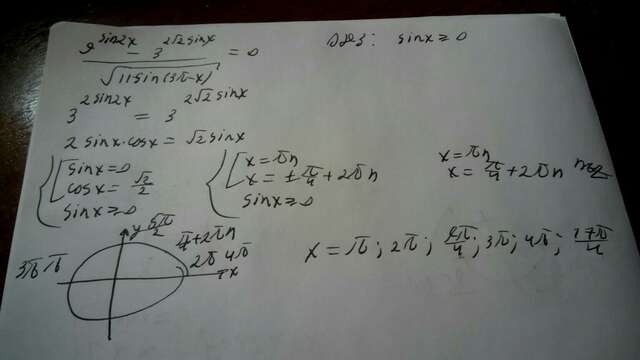 9^sin2x − 3^2√2 sinx / √11 sin(3π−x) = 0
ОДЗ: sinx ≥ 0
3^2sin2x = 3^2√2 sinx
2 sinx·cosx = √2 sinx
sinx=0
cosx = √2/2
sinx ≥ 0
x = πn
x = ±π/4 + 2πn
sinx ≥ 0
x = πn
x = π/4 + 2πn
y 5π/2
π/4+2πn
3π π
2π 4π
x
x = π; 2π; 9π/4; 3π; 4π; 17π/4